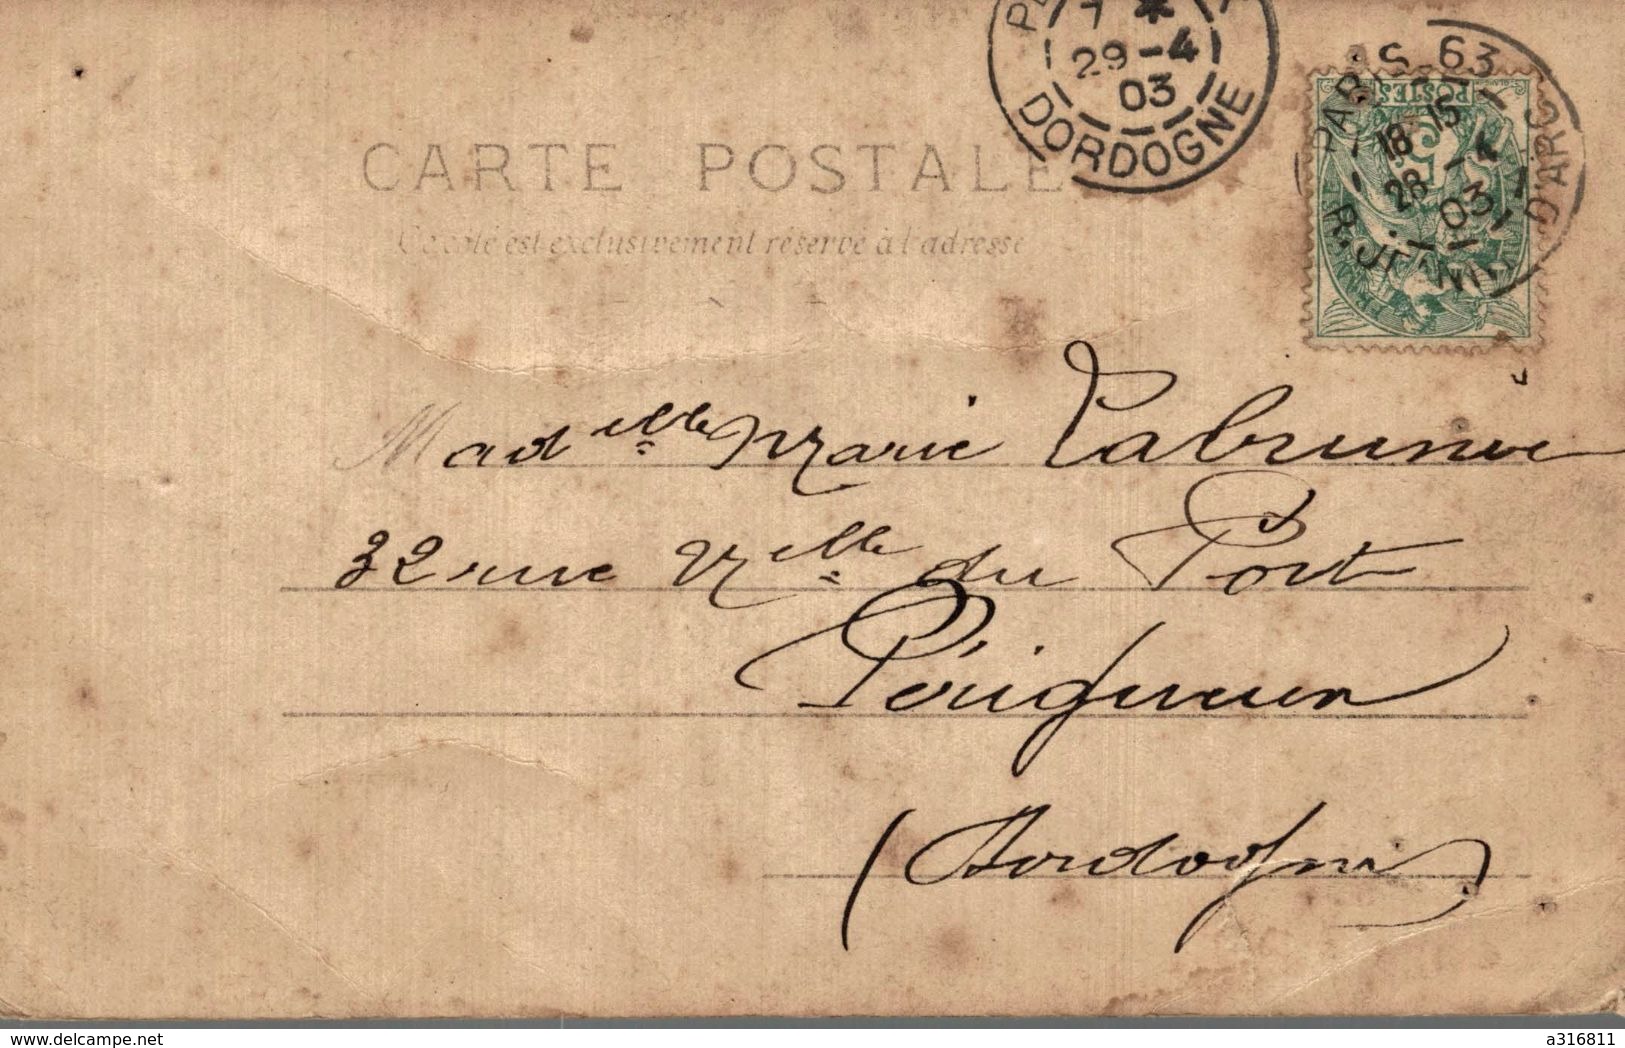 29-4
03
DORDOGNE
PARIS-63
18 15
28-4
03
D'ARC
POSTES
5
CARTE POSTALE
Ce côté est exclusivement réservé à l'adresse
Madelle Marie Labrunie
32 rue Vlle du Port
Périgueux
(Dordogne)
a316811